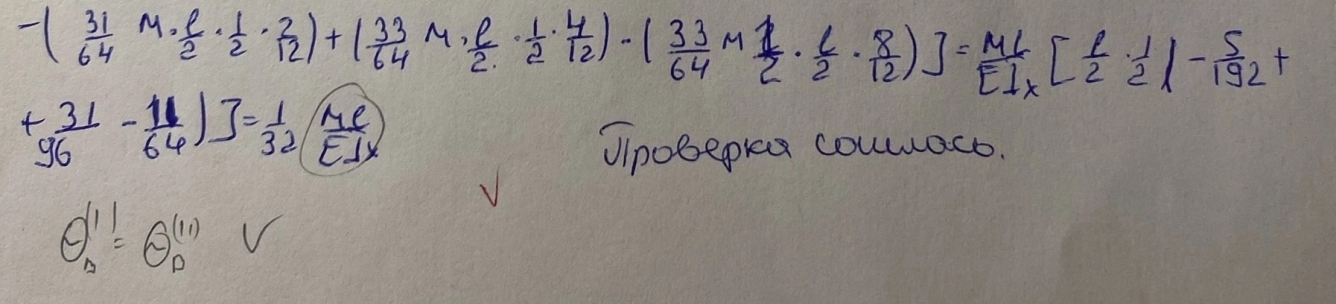 -( 31/64 M·l/2·1/2·2/12)+(33/64 M·l/2·1/2·4/12)-(33/64 M 1/2·l/2·8/12)]=Ml/EIx[l/2·1/2)-5/192+
+31/96-11/64)]=1/32 Ml/EIx
Проверка сошлась.
√
Θ_D^(I)=Θ_D^(II) √